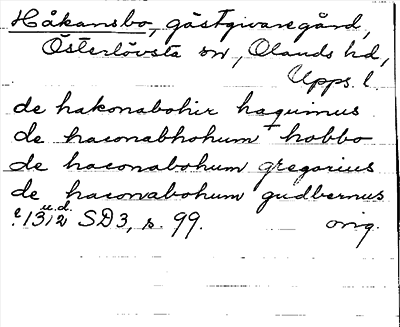 Håkansbo, gästgivaregård,
Österlövsta sn, Olands hd,
Upps. l.
de hakonabohir haquinus
de haconabhohum + hobbo
de haconabohum gregorius
de haconabohum gudbernus
u.d.
c. 1312 SD3, s. 99. orig.